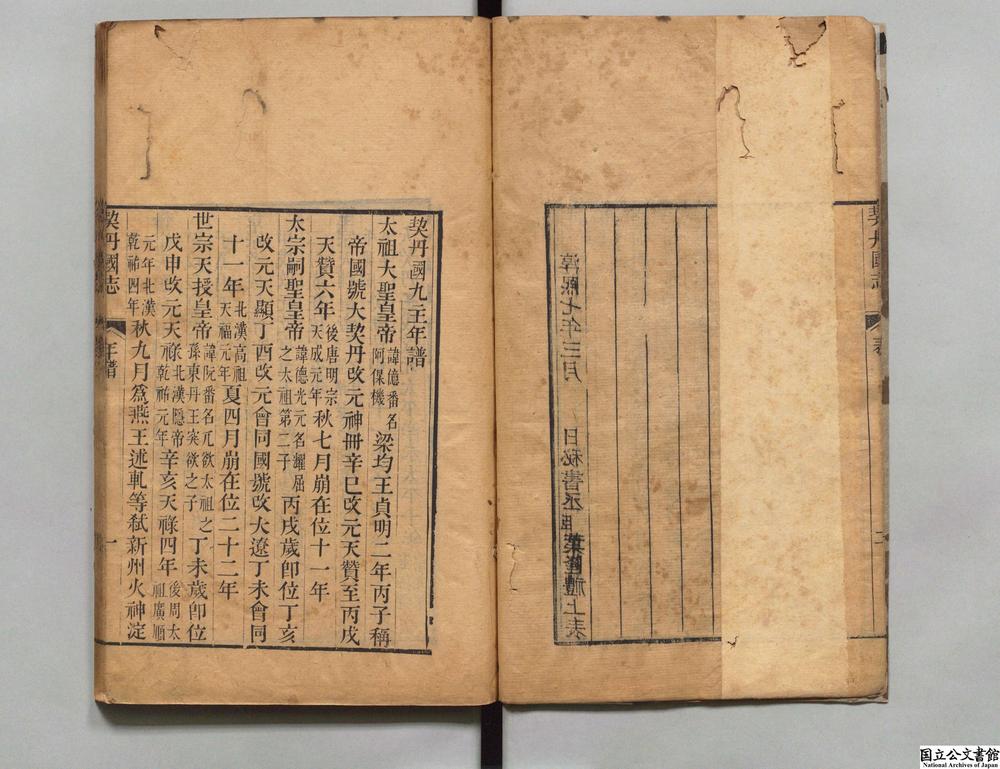 契丹國志 表 二
淳熙七年三月 日秘書丞臣葉隆禮上表
契丹國九主年譜
太祖大聖皇帝諱億番名阿保機梁均王貞明二年丙子稱
帝國號大契丹改元神冊辛巳改元天贊至丙戌
天贊六年後唐明宗天成元年秋七月崩在位十一年
太宗嗣聖皇帝諱德光元名耀屈之太祖第二子丙戌歲卽位丁亥
改元天顯丁酉改元會同國號改大遼丁未會同
十一年北漢高祖天福元年夏四月崩在位二十二年
世宗天授皇帝諱阮番名兀欲太祖之孫東丹王突欲之子丁未歲卽位
戊申改元天祿北漢隱帝乾祐元年辛亥天祿四年後周太祖廣順
元年北漢乾祐四年秋九月爲燕王述軋等弒新州火神淀
契丹國志 年譜 一
国立公文書館
National Archives of Japan